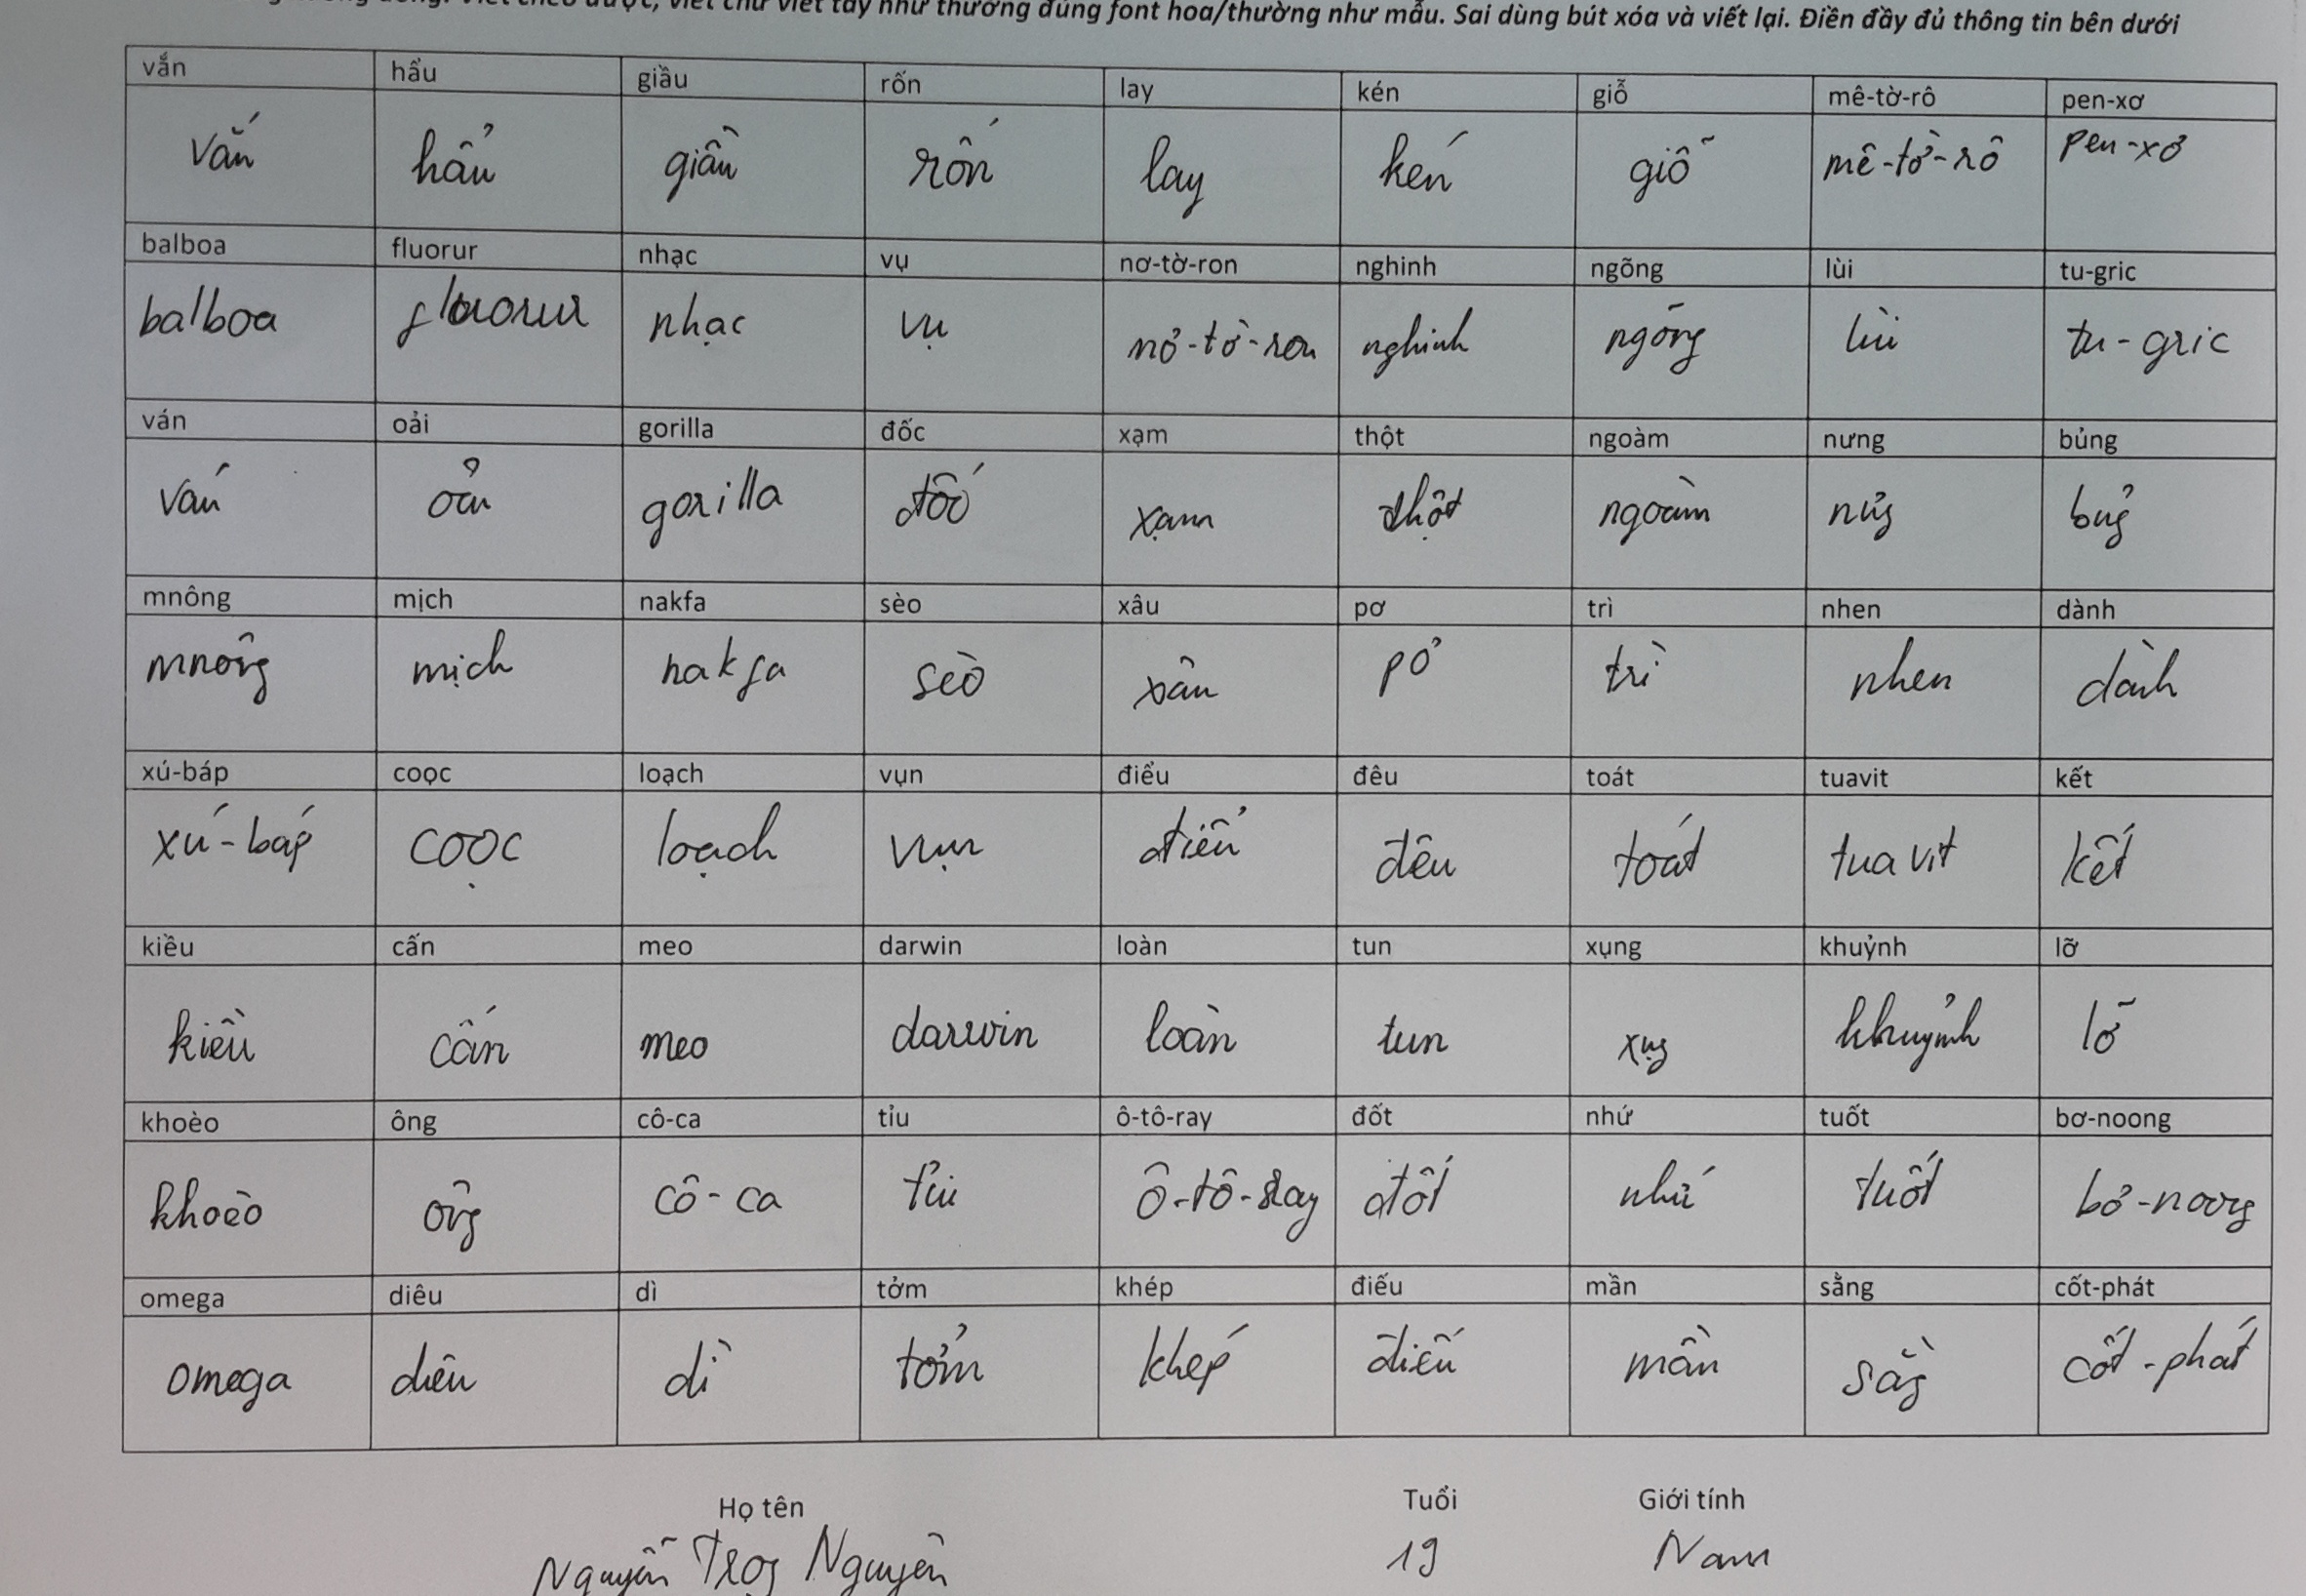 viết theo được, viết chữ viết tay như thường đúng font hoa/thường như mẫu. Sai dùng bút xóa và viết lại. Điền đầy đủ thông tin bên dưới
vắn hẩu giầu rốn lay kén giỗ mê-tờ-rô pen-xơ
vắn hẩu giầu rốn lay kén giỗ mê-tờ-rô pen-xơ
balboa fluorur nhạc vụ nơ-tờ-ron nghinh ngõng lùi tu-gric
balboa fluorur nhạc vụ nơ-tờ-ron nghinh ngõng lùi tu-gric
ván oải gorilla đốc xạm thột ngoàm nưng bủng
ván oải gorilla đốc xạm thột ngoàm nưng bủng
mnông mịch nakfa sèo xâu pơ trì nhen dành
mnông mịch nakfa sèo xâu pơ trì nhen dành
xú-báp coọc loạch vụn điểu đêu toát tuavit kết
xú-báp coọc loạch vụn điểu đêu toát tuavit kết
kiều cấn meo darwin loàn tun xụng khuỷnh lỡ
kiều cấn meo darwin loàn tun xụng khuỷnh lỡ
khoèo ông cô-ca tỉu ô-tô-ray đốt nhứ tuốt bơ-noong
khoèo ông cô-ca tỉu ô-tô-ray đốt nhứ tuốt bơ-noong
omega diêu dì tởm khép điếu mần sằng cốt-phát
omega diêu dì tởm khép điếu mần sằng cốt-phát
Họ tên Tuổi Giới tính
Nguyễn Trọng Nguyên 19 Nam